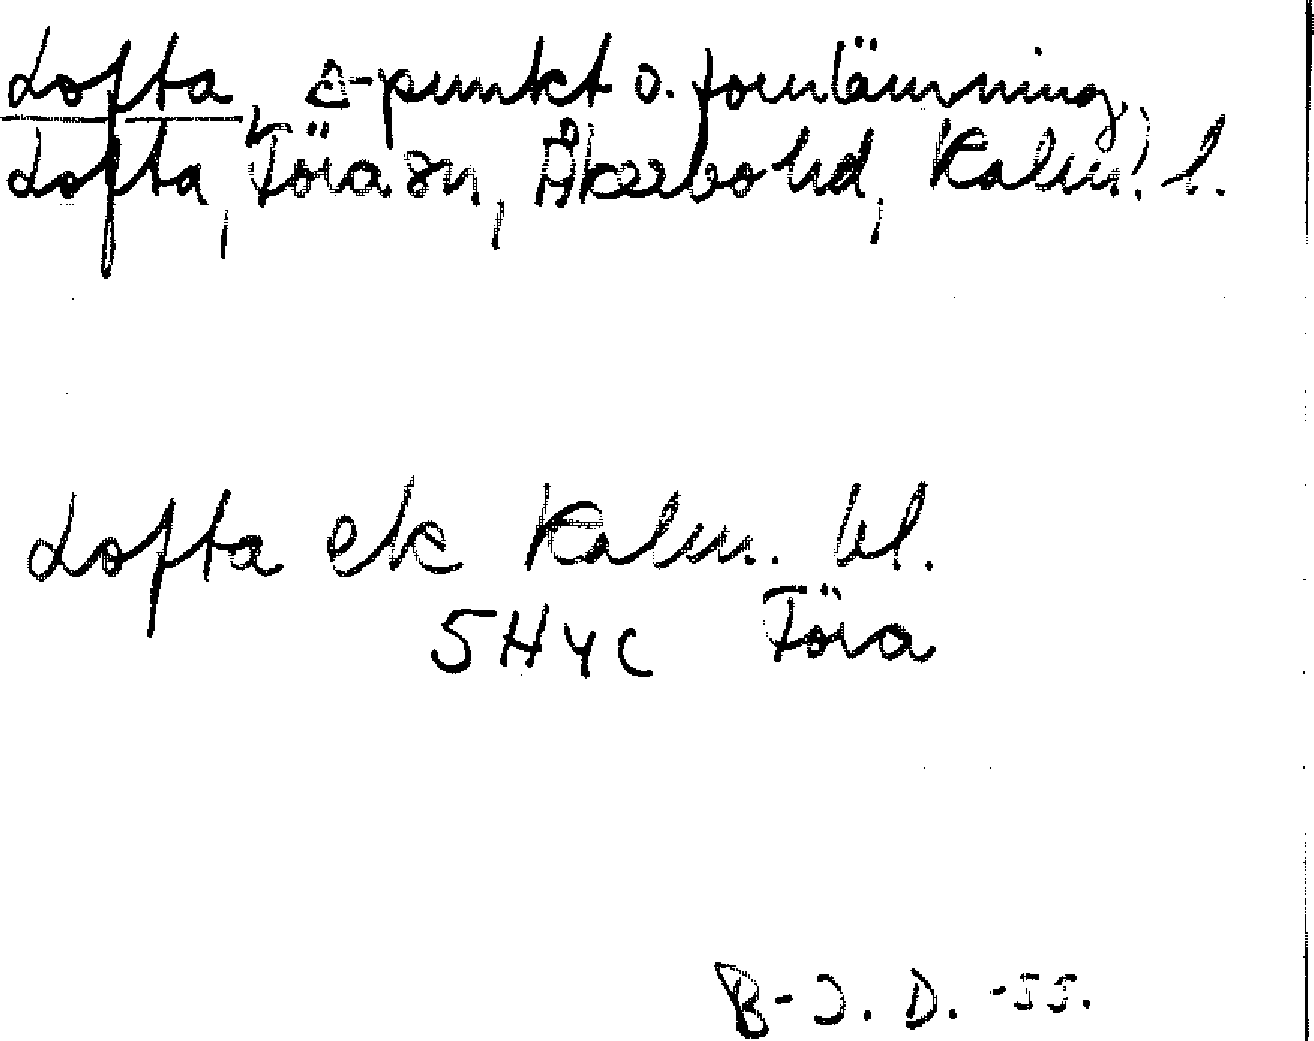 Lofta, △-punkt o. fornlämning,
Lofta, Föra sn, Åkerbo hd, Kalm. l.
Lofta ek Kalm. bl.
5H4c Föra
B-J. D. -55.